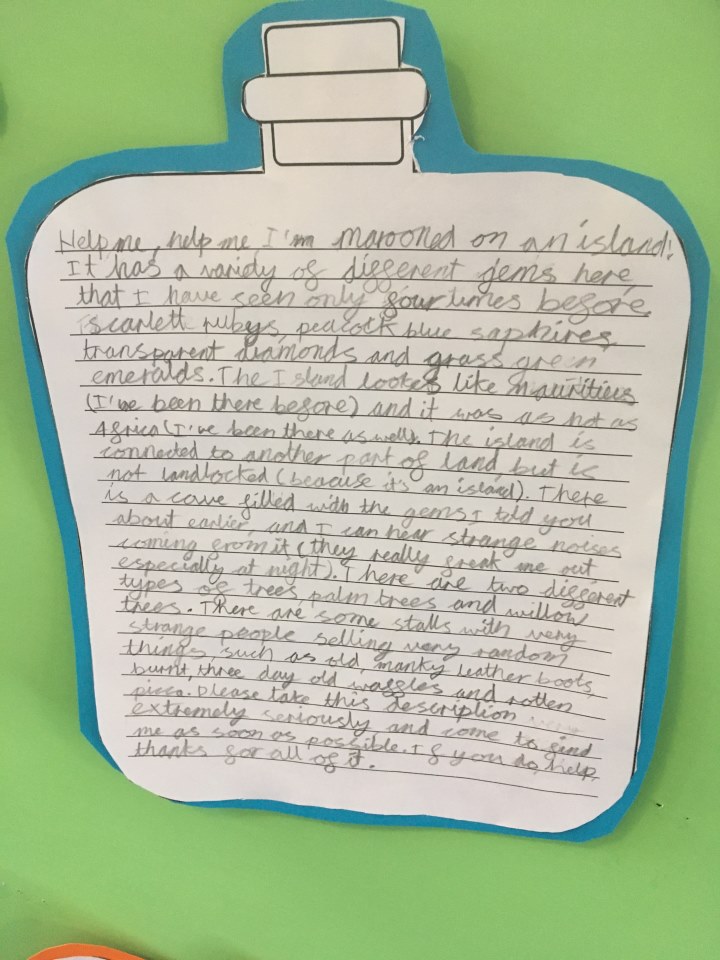 Help me, help me I'm marooned on an island!
It has a variety of different gems here
that I have seen only four times before,
scarlett rubys, peacock blue saphires,
transparent diamonds and grass green
emeralds. The Island lookes like Mauritius
(I've been there before) and it was as hot as
Africa (I've been there as well). The island is
connected to another part of land, but is
not landlocked (because it's an island). There
is a cave filled with the gems I told you
about earlier, and I can hear strange noises
coming from it (they really freak me out
especially at night). There are two different
types of trees, palm trees and willow
trees. There are some stalls with very
strange people selling very random
things such as old, manky leather boots,
burnt, three day old waffles and rotten
pizza. Please take this description
extremely seriously and come to find
me as soon as possible. If you do, help,
thanks for all of it.